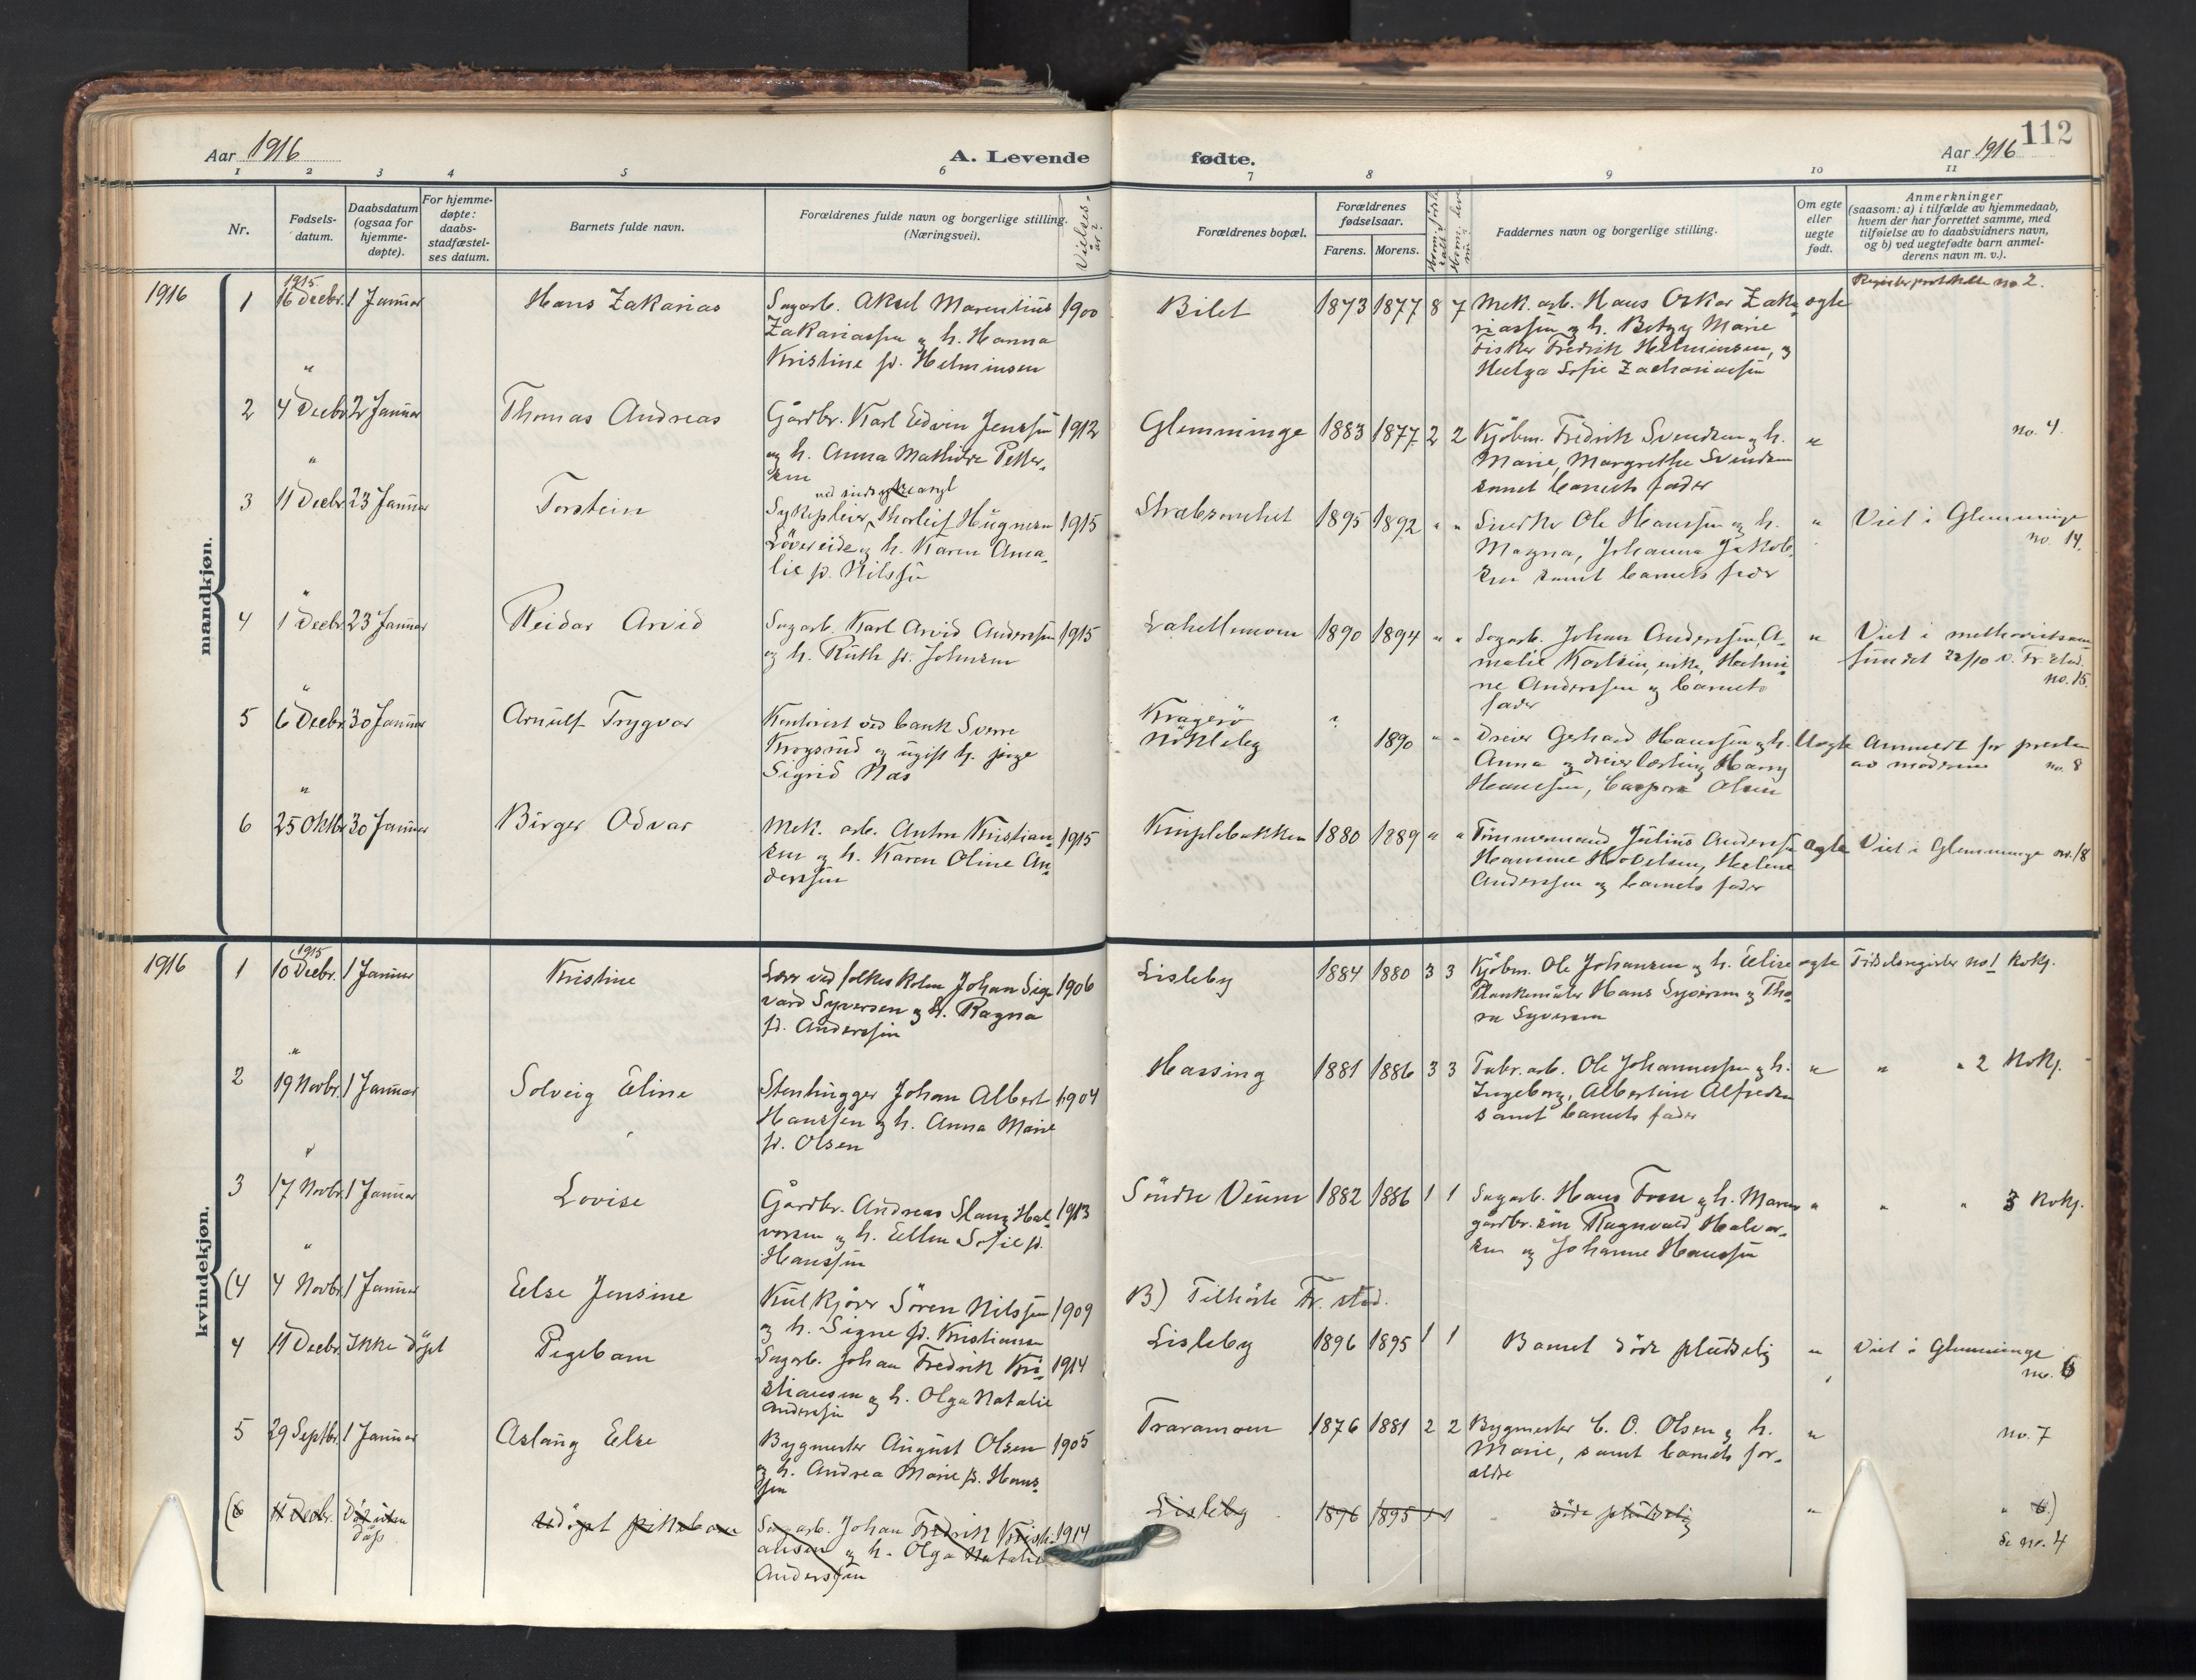 Aar 1916
A. Levende
fødte.
Aar 1916
112
1 2 3 4 5 6 7 8 9 10 11
Nr.
Fødsels-
datum.
Daabsdatum
(ogsaa for
hjemme-
døpte).
For hjemme-
døpte:
daabs-
stadfæstel-
ses datum.
Barnets fulde navn.
Forældrenes fulde navn og borgerlige stilling.
(Næringsvei).
Vielses-
år?
Forældrenes bopæl.
Forældrenes
fødselsaar.
Farens. Morens.
Faddernes navn og borgerlige stilling.
Om egte
eller
uegte
født.
Anmerkninger
(saasom: a) i tilfælde av hjemmedaab,
hvem der har forrettet samme, med
tilføielse av to daabsvidners navn,
og b) ved uegtefødte barn anmel-
derens navn m. v.).
mandkjøn.
1916
1915
1 16 Decbr. 1 Januar Hans Zakarias
Sagarb. Aksel Marentius
Zakariassen og h. Hanna
Kristine fd. Helminsen
1900 Bilet 1873 1877 8 7
Mek. arb. Hans Oskar Zaka-
riassen og h. Betzy Marie
Fisker Fredrik Helminsen, og
Helga Sofie Zachariassen
egte
Registerprotokollen no 2.
"
2 4 Decbr 2 Januar Thomas Andreas
Gårdbr. Karl Edvin Jenssen
og h. Anna Mathilde Petter-
sen
1912 Glemminge 1883 1877 2 2
Kjøbm. Fredrik Svendsen og h.
Marie, Margrethe Svendsen
samt barnets fader
"
no. 4.
"
3 11 Decbr. 23 Januar Torstein
ved sindsykeasyl
Sykepleier Thorleif
Løvereide og h. Karen Ama-
lie fd. Nilssen
1915 1895 1892 " "
Snedker Ole Hanssen og h.
Magna, Johanna Jakob-
sen samt barnets fader
"
Viet i Glemminge
no. 14.
"
4 1 Decbr. 23 Januar Reidar Arvid
Sagarb. Karl Arvid Anderssen
og h. Ruth fd. Johnsen
1915 Lahellemoen 1890 1894 " "
Sagarb. Johan Anderssen, A-
malie Karlsen, enke,
ne Anderssen og barnets
fader
"
Viet i methodistsam-
fundet 22/10 v. Fr.stad.
no. 15.
"
5 6 Decbr. 30 Januar Arnulf Trygvar
Kontorist ved bank Sverre
Krogsrud og ugift h. pige
Sigrid Næs
Kragerø
Nökleby
? 1890 " "
Dreier Gerhard Hanssen og h.
Anna og dreierlærling Harry
Hanssen, Caspara Olsen
Uegte
Anmeldt for presten
av moderen no. 8
"
6 25 Oktbr 30 Januar Birger Odvar
Mek. arb. Anton Kristian-
sen og h. Karen Oline An-
derssen
1915 1880 1889 " "
Tømmermand Julius Anderssen
Anderssen og barnets fader
egte Viet i Glemminge no. 18
kvindekjøn.
1916
1915
1 10 Decbr. 1 Januar Kristine
Lærer ved folkeskolen Johan Sig-
vard Syversen og h. Ragna
fd. Anderssen
1906 Lisleby 1884 1880 3 3
Kjøbm. Ole Johansen og h. Elise
Plankemåler Hans Syversen og Tho-
ra Syversen
egte Fødselsregister no 1 Kvkj.
"
2 19 Novbr. 1 Januar Solveig Eline
Stenhugger Johan Albert
Hanssen og h. Anna Marie
fd. Olsen
1904 Hassing 1881 1886 3 3
Fabr. arb. Ole Johannessen og h.
Ingeborg, Albertine Alfredsen
samt barnets fader
" " " 2 Kvkj.
"
3 17 Novbr. 1 Januar Lovise
Gårdbr. Andreas Slang Hal-
vorsen og h. Ellen Sofie fd.
Hanssen
1913 Søndre Veum 1882 1886 1 1
Sagarb. Hans Foss og h. Maren
gårdbr. søn Ragnvald Halvor-
sen og Johanne Hanssen
" " " 3 Kvkj.
"
(4 4 Novbr. 1 Januar Else Jensine
Kulkjører Søren Nilssen
og h. Signe fd. Kristiansen
1909 B) Tilhörte Fr.stad.
4 11 Decbr. Ikke døpt Pigebarn
Sagarb. Johan Fredrik Kri-
stiansen og h. Olga Natalie
Anderssen
1914 Lisleby 1896 1895 1 1
Barnet döde pludselig
" Viet i Glemminge
no. 6
5 29 Septbr. 1 Januar Aslaug Else
Bygmester August Olsen
og h. Andrea Marie fd. Hans-
sen
1905 Traramoen 1876 1881 2 2
Bygmester C. O. Olsen og h.
Marie, samt barnets for-
ældre
" no. 7
(6 11 Decbr. Död uten
dåp
Udøpt pikebarn
Sagarb. Johan Fredrik Kristi-
ansen og h. Olga Natalie
Anderssen
1914 Lisleby 1896 1895 1 1
döde pludselig
" " 6)
Se no. 4